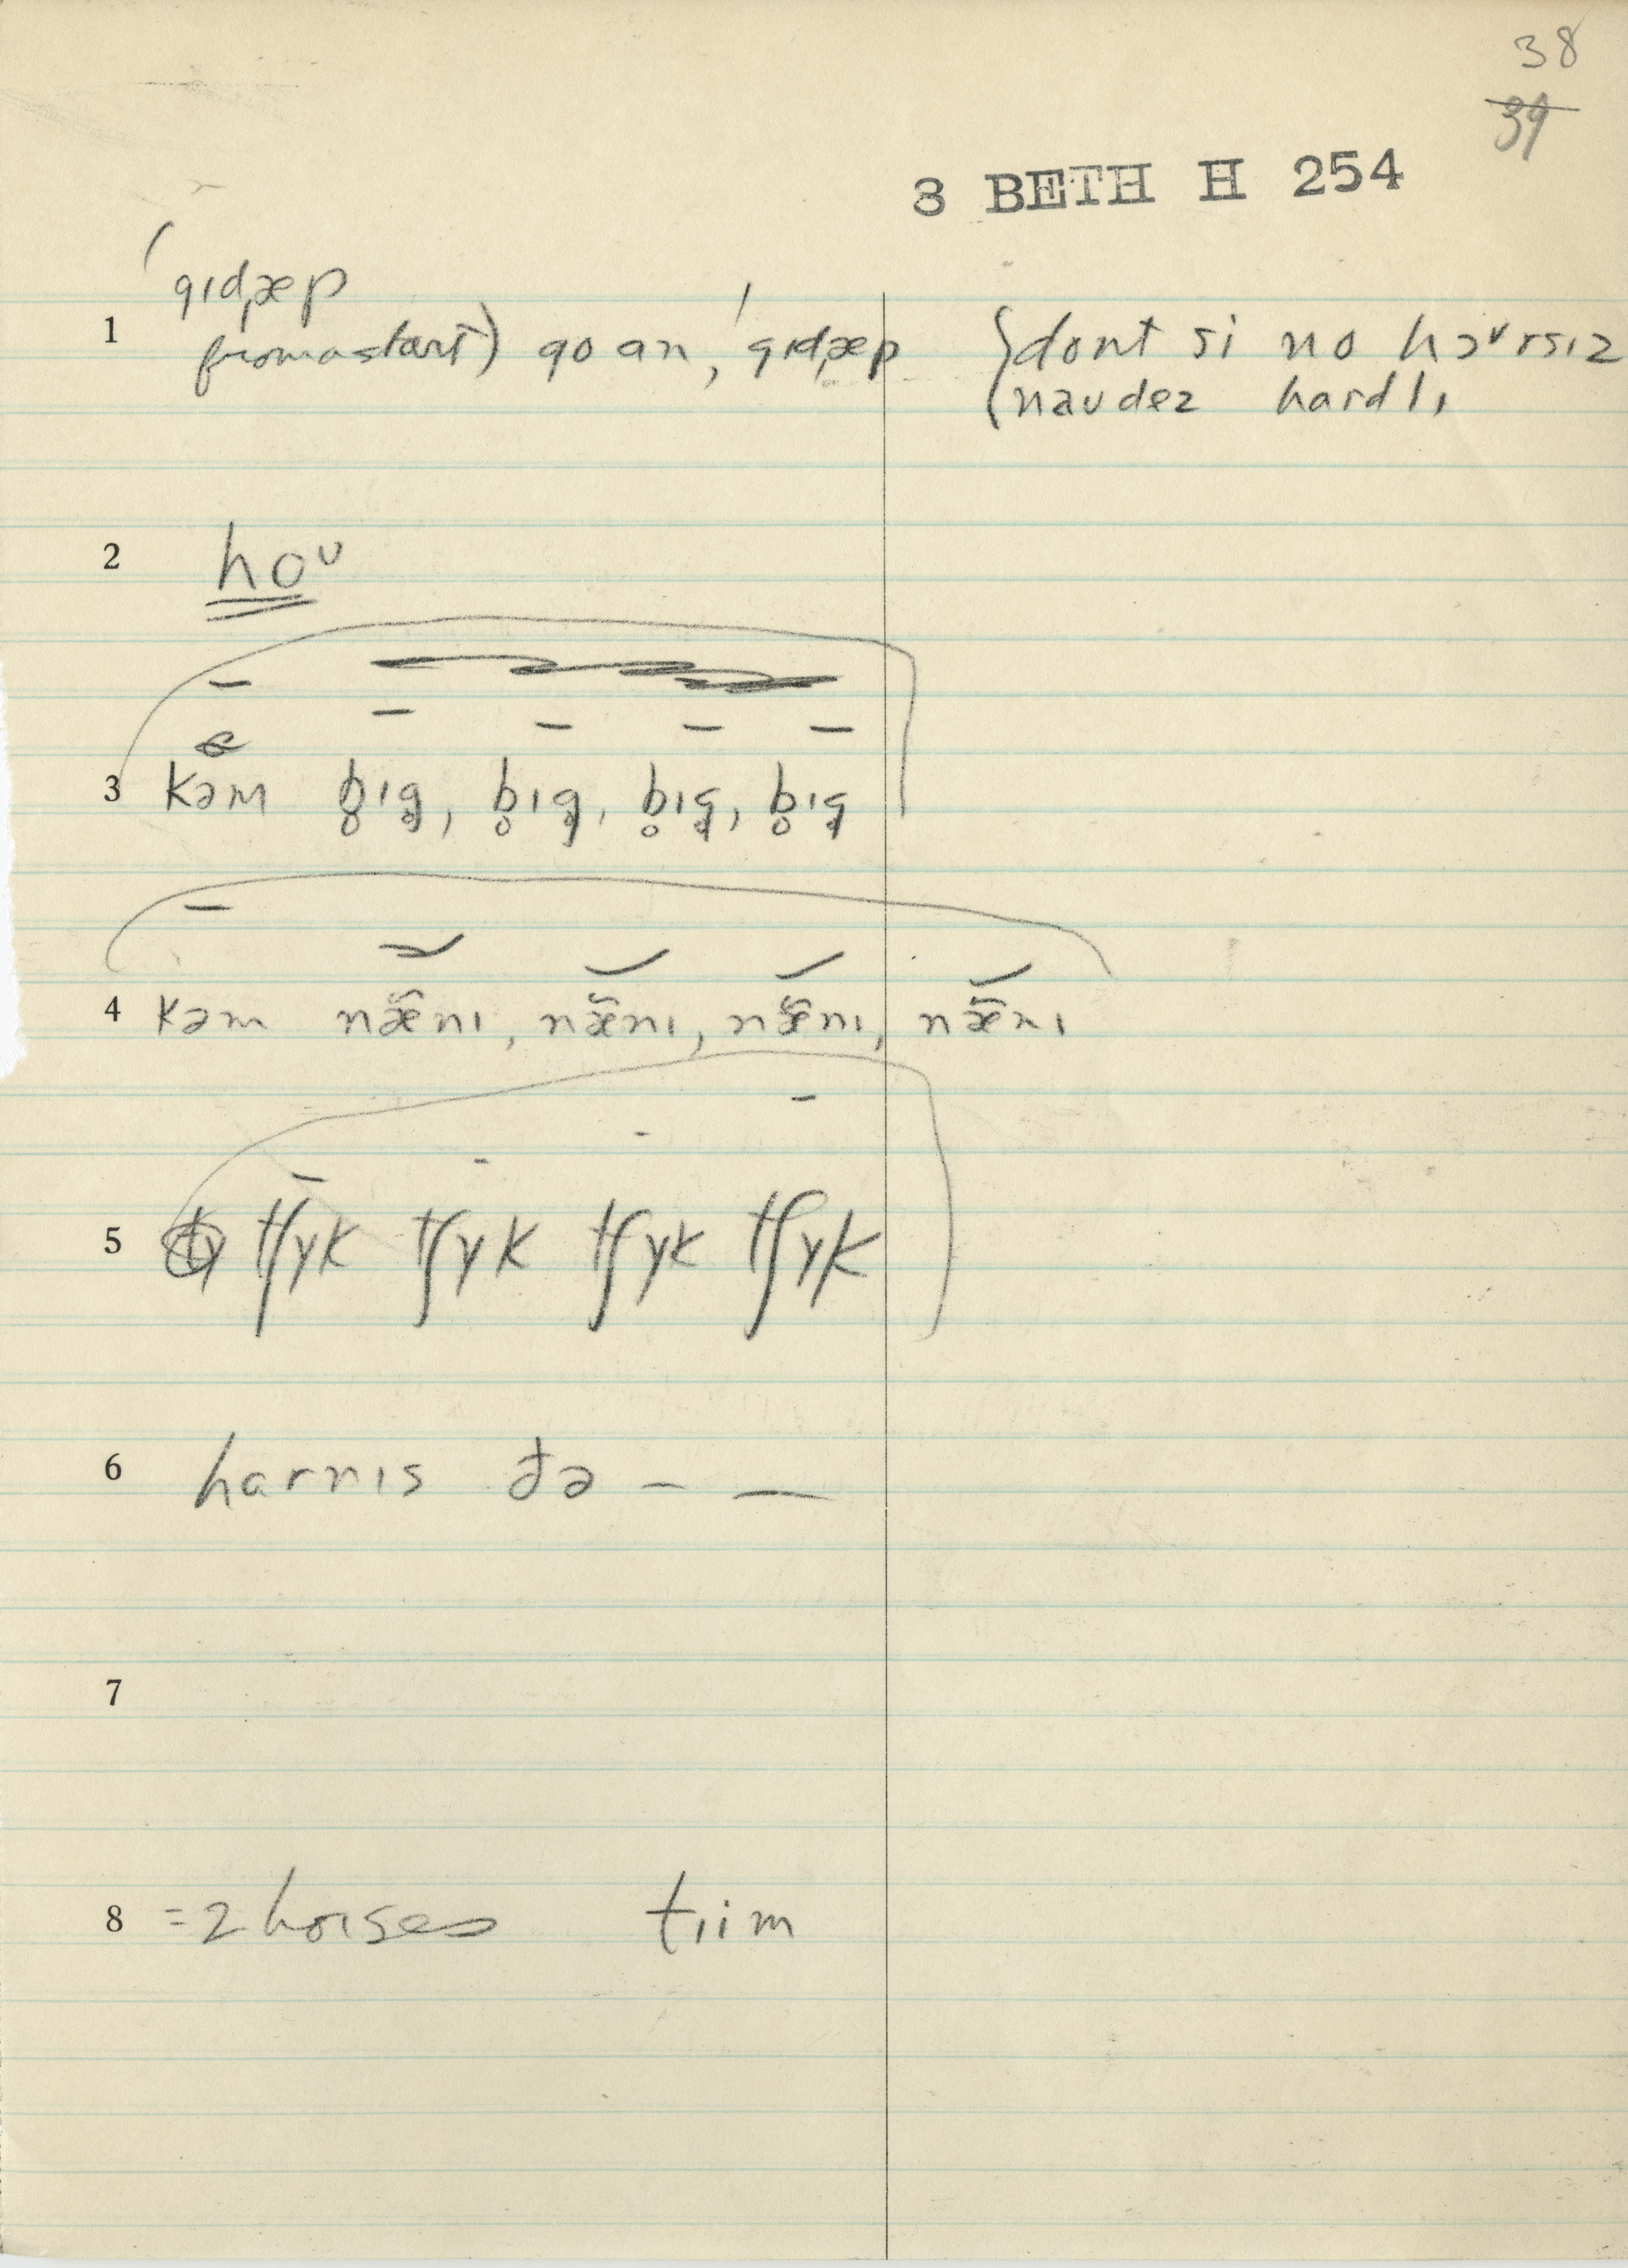 38
39
3 BETH H 254
(gɪdˌæp
1 from a start) go an, ˈgɪdˌæp {dont si no hɔᶹrsɪz
(naudez hardlɪ
2 hoᶹ
3 kəm b̥ɪg̥, b̥ɪg̥, b̥ɪg̥, b̥ɪg̥
4 kəm næ̃nɪ, næ̃nɪ, næ̃nɪ, næ̃nɪ
5 tʃʏk tʃʏk tʃʏk tʃʏk
6 harnɪs ðə – —
7
8 = 2 horses tɪim